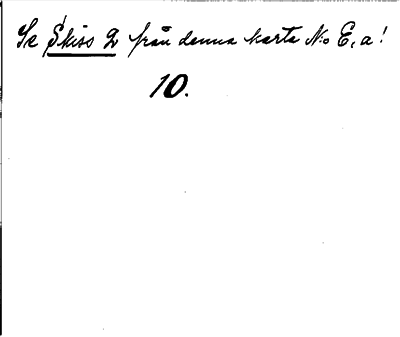 Se Skiss 2 från denna karta N:o E, a!
10.